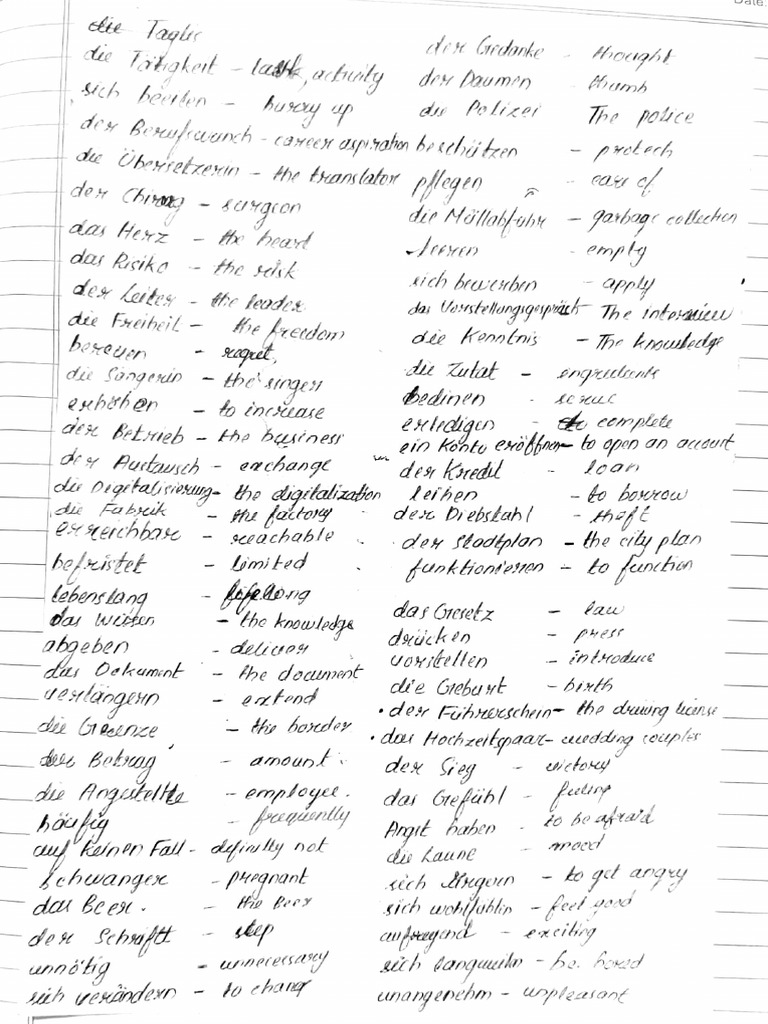 Date:
die Taglie
die Tätigkeit - task, activity
sich beeilen - hurry up
der Berufswunch - career aspiration
die Übersetzerin - the translator
der Chirurg - surgeon
das Herz - the heart
das Risiko - the risk
der Leiter - the leader
die Freiheil - the freedom
bereuen - regret,
die Sängerin - the singer
erhöhen - to increase
der Betrieb - the business
der Austausch - exchange
die Digitalisierung - the digitalization
die Fabrik - the factory
erreichbar - reachable
befristet - limited
lebenslang - lifelong
das Wissen - the knowledge
abgeben - deliver
das Dokument - the document
verlängern - extend
die Grenze - the border
der Betrag - amount
die Angestellte - employee.
häufig - frequently
auf keinen Fall - definitly not
schwanger - pregnant
das Beer. - the beer
der Schrift - step
unnötig - unnecessary
sich verändern - to change
der Gedanke - thought
der Daumen - thumb
die Polizei The police
beschützen - protech
pflegen - care of
die Müllabfuhr - garbage collection
leeren - empty
sich bewerben - apply
das Vorstellungsgespräch - The interview
die Kenntnis - The knowledge
die Zutat - engrediants
bedinen - serve
erledigen - to complete
ein Konto eröffnen - to open an account
der Kredil - loan
leihen - to borrow
der Diebstahl - theft
der Stadtplan - the city plan
funktionieren - to function
das Gesetz - law
drücken - press
vorstellen - introduce
die Geburt - birth
• der Führerschein - the driving license
• das Hochzeitspaar - wedding couples
der Sieg - victory
das Gefühl - feeling
Angst haben - to be afraid
die Laune - mood
sich Ärgern - to get angry
sich wohlfühlin - feel good
aufregend - exciting
sich langweiln - be bored
unangenehm - unpleasant